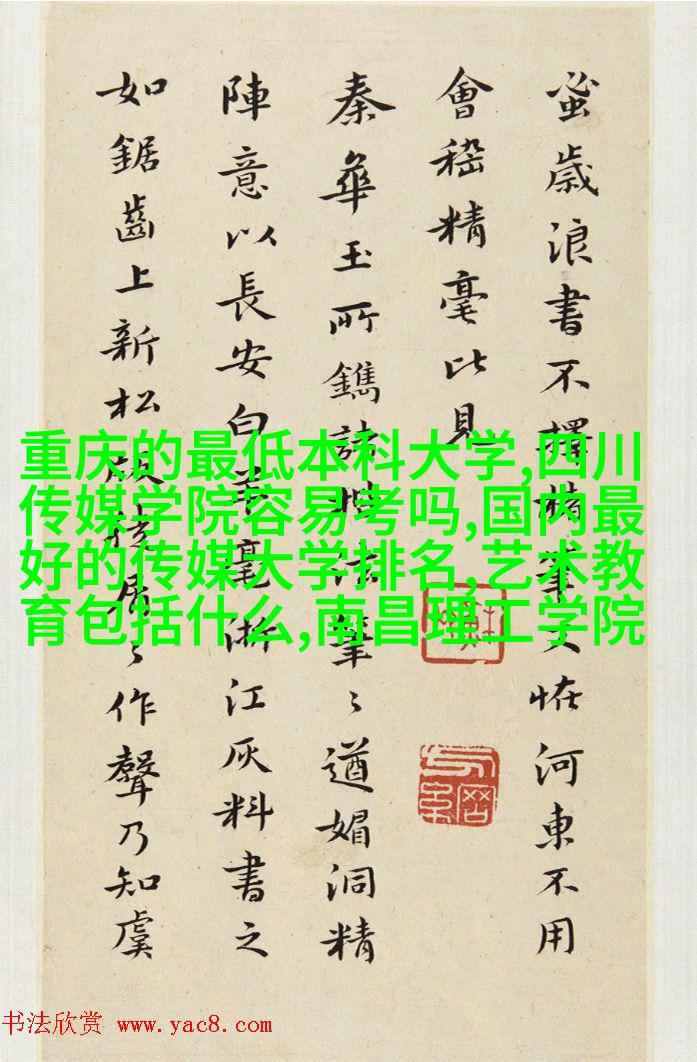 歲浪書不擇筆又恠河東不用
會稽精毫比見
秦華玉所鐫筆〻遒媚洞精
陣意以長安白毫浙江灰料書之
如鋸齒上新松〻作聲乃知虞
重庆的最低本科大学,四川
传媒学院容易考吗,国内最
好的传媒大学排名,艺术教
育包括什么,南昌理工学院
书法欣赏 www.yac8.com